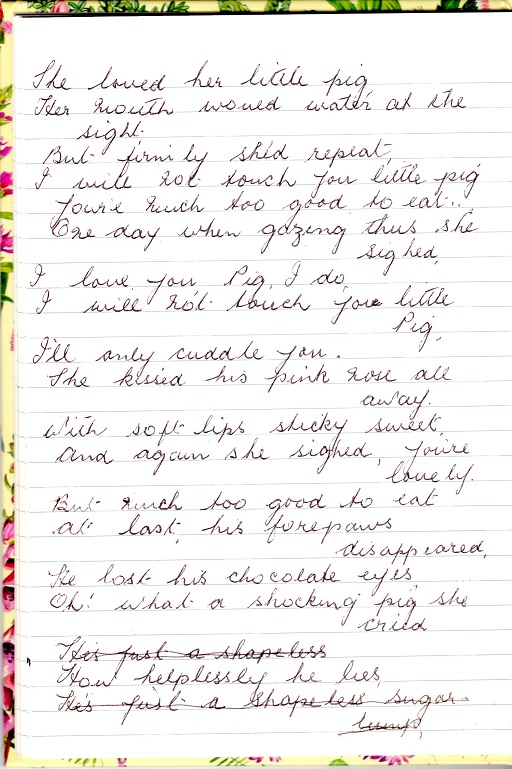 She loved her little pig
Her mouth woued water at the
sight.
But firmly she'd repeat,
I will not touch you little pig
You're much too good to eat..
One day when gazing thus she
sighed,
I love you Pig, I do,
I will not touch you little
Pig,
I'll only cuddle you.
She kissed his pink nose all
away.
With soft lips sticky sweet,
And again she sighed, you're
lovely.
But much too good to eat
at last, his forepaws
disappeared,
He lost his chocolate eyes,
Oh! what a shocking pig she
cried
He's just a shapeless
How helplessly he lies,
He's just a shapeless sugar
lump,